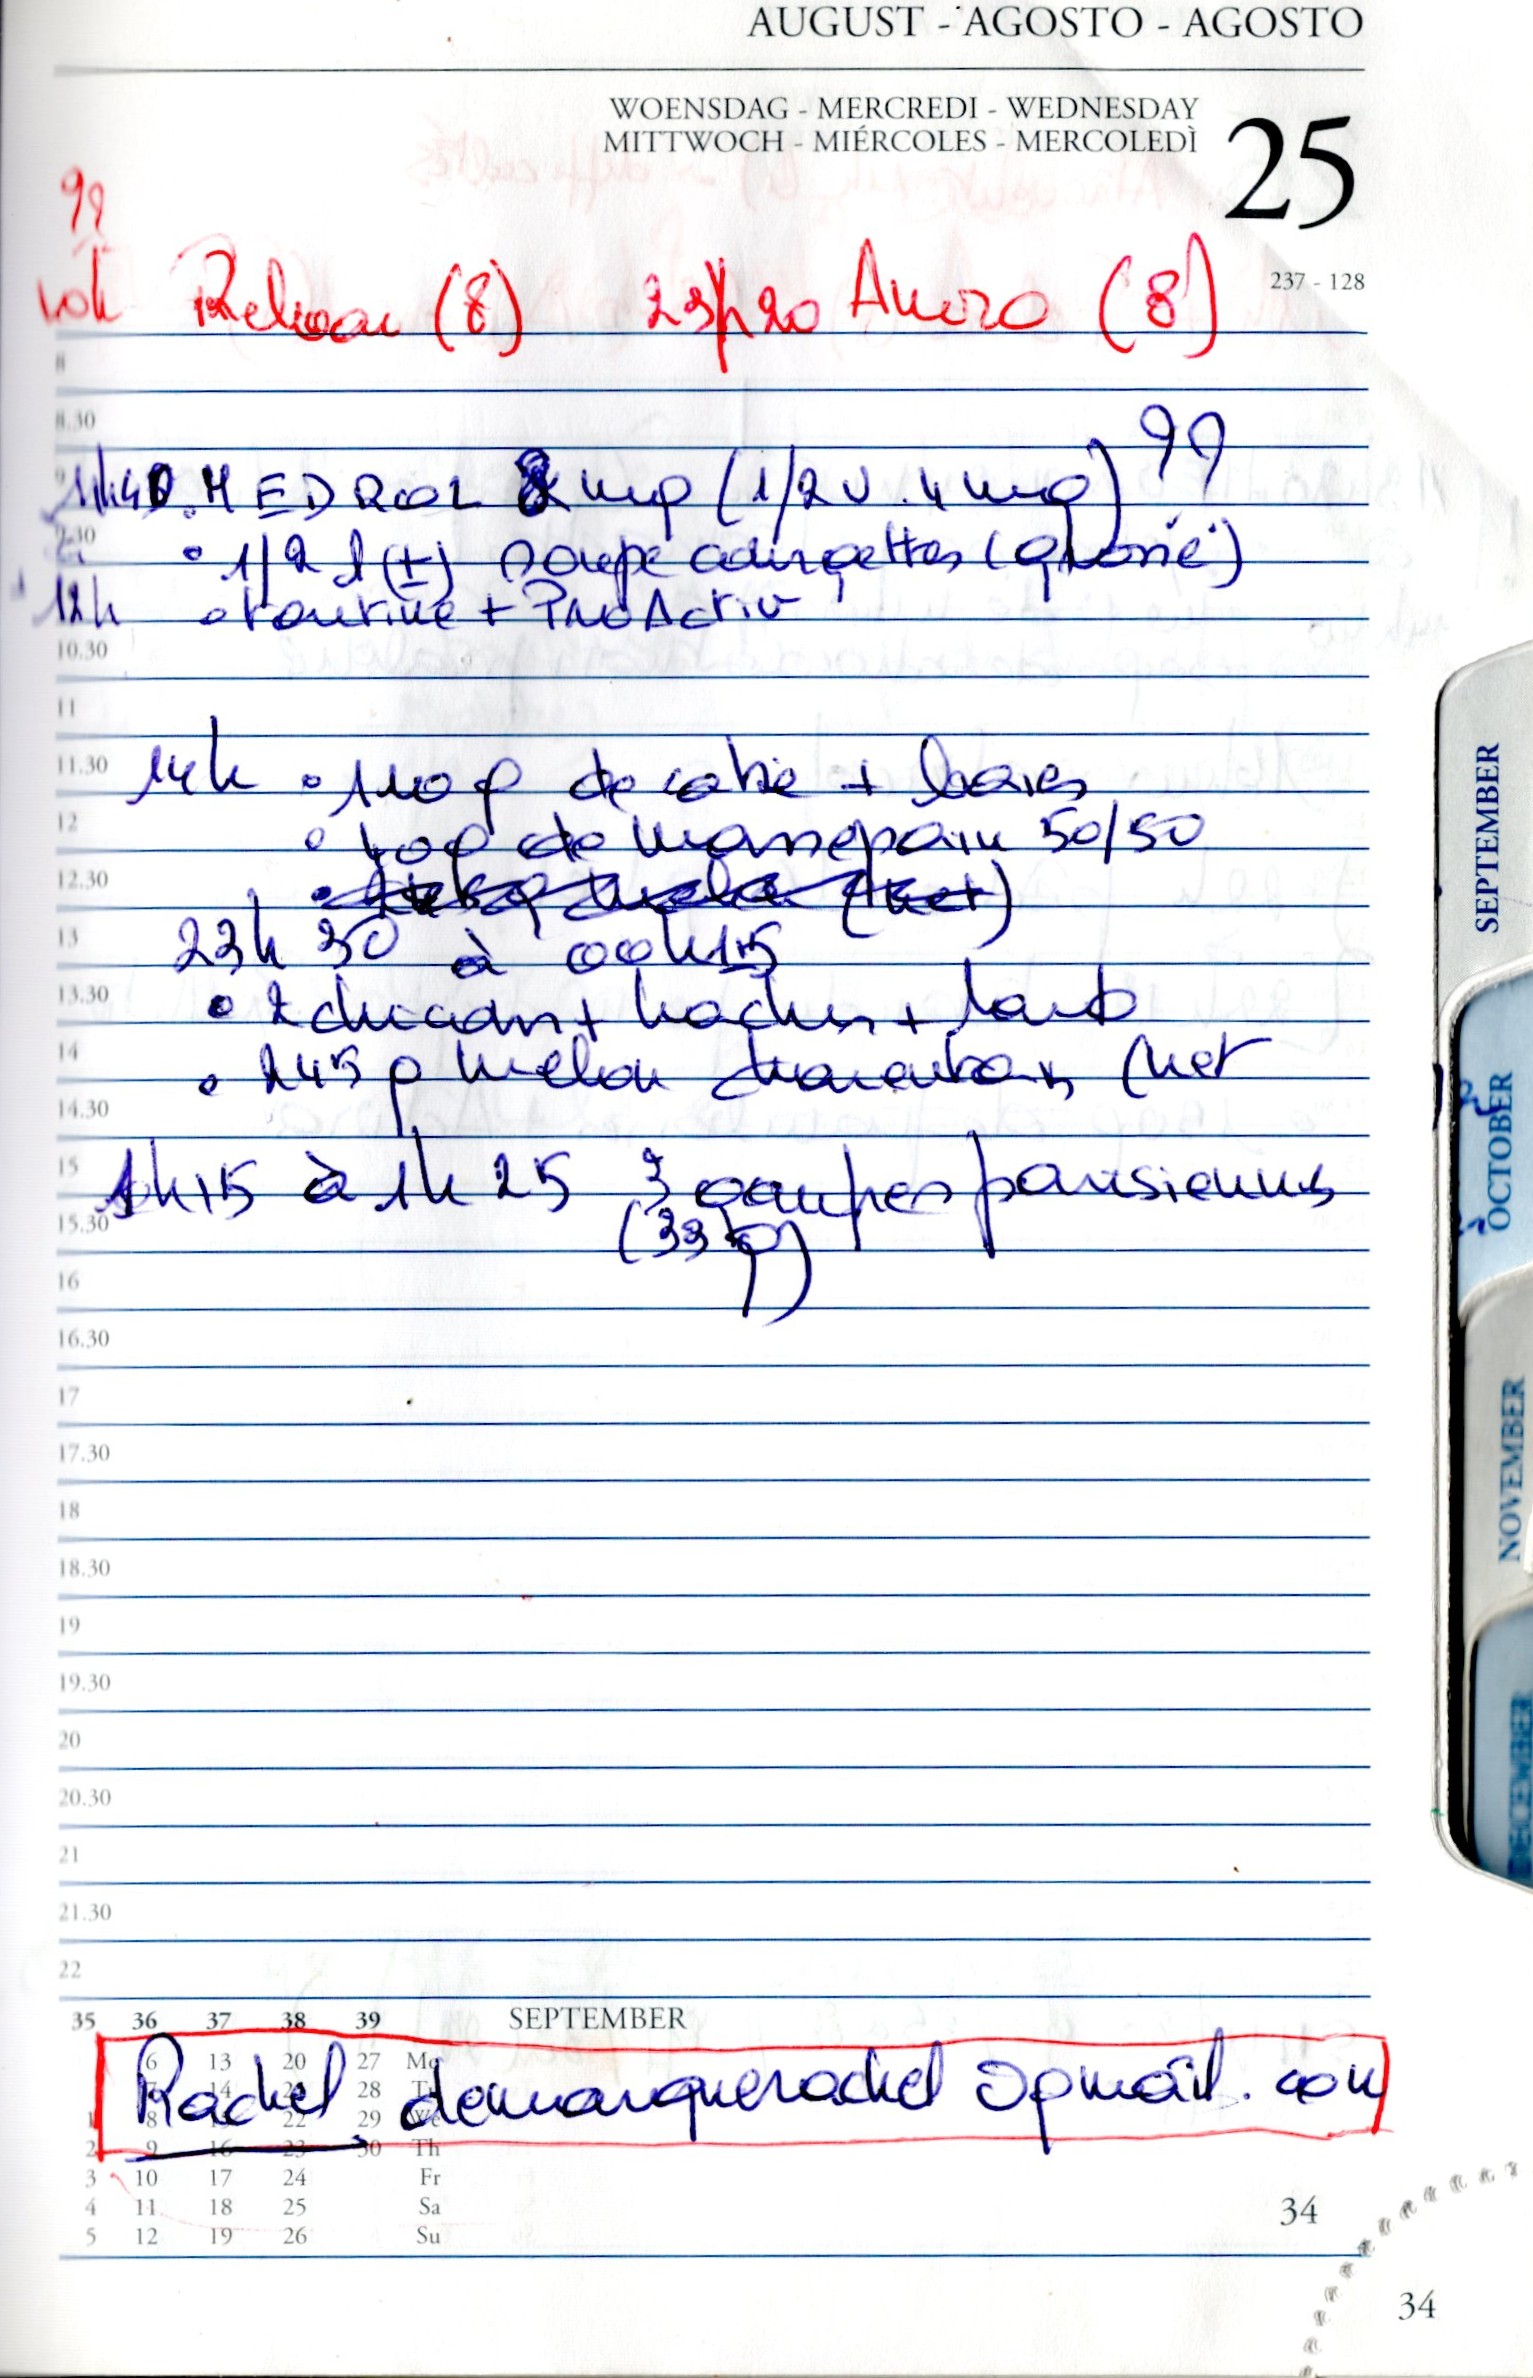 AUGUST - AGOSTO - AGOSTO
WOENSDAG - MERCREDI - WEDNESDAY
MITTWOCH - MIÉRCOLES - MERCOLEDÌ
25
237 - 128
99
10h Relvar (8) 23h20 (8)
8
8.30
99
11h40 . MEDROL mg (1/2 U . 4 mg)
9.30
• 1/2 l (±) soupe courgettes
12h • tartine + ProActiv
10.30
11
11.30 14h • 110 g de + baies
12
• 40 g de 50/50
12.30
13 23h 30 à 00h15
13.30 • 2 chicons + hachis +
14 • 245 g melon charentais (net
14.30
15 1h15 à 1h 25 3 gaufres parisiennes
15.30
16
16.30
17
17.30
18
18.30
19
19.30
20
20.30
21
21.30
22
35 36 37 38 39 SEPTEMBER
6 13 20 27 Mo
Rachel demarquerachel @gmail.com
14 28
1 8 22 29 We
2 9 16 23 30 Th
3 10 17 24 Fr
4 11 18 25 Sa
5 12 19 26 Su
34
34
SEPTEMBER
OCTOBER
NOVEMBER
DECEMBER